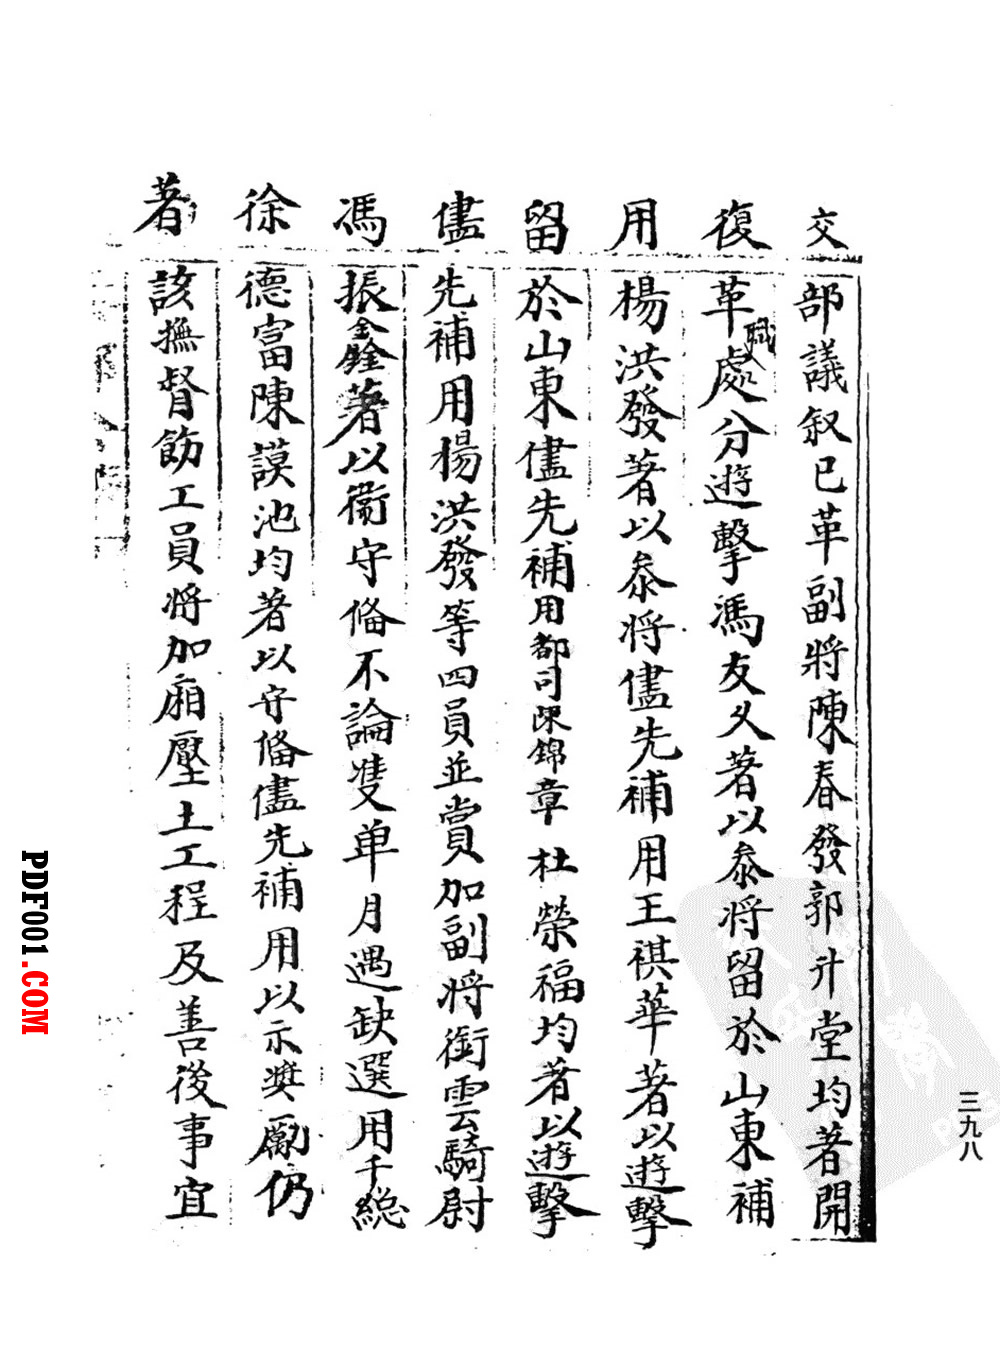 交部議叙已革副將陳春發郭升堂均著開
復革職處分遊擊馮友义著以叅將留於山東補
用楊洪發著以叅將儘先補用王祺華著以遊擊
留於山東儘先補用都司陳錦章杜榮福均著以遊擊
儘先補用楊洪發等四員並賞加副將銜雲騎尉
馮振銓著以衞守俻不論雙单月遇缺選用千総
徐德富陳謨池均著以守俻儘先補用以示奨勵仍
著該撫督飭工員將加廂壓土工程及善後事宜
三九八
PDF001.COM